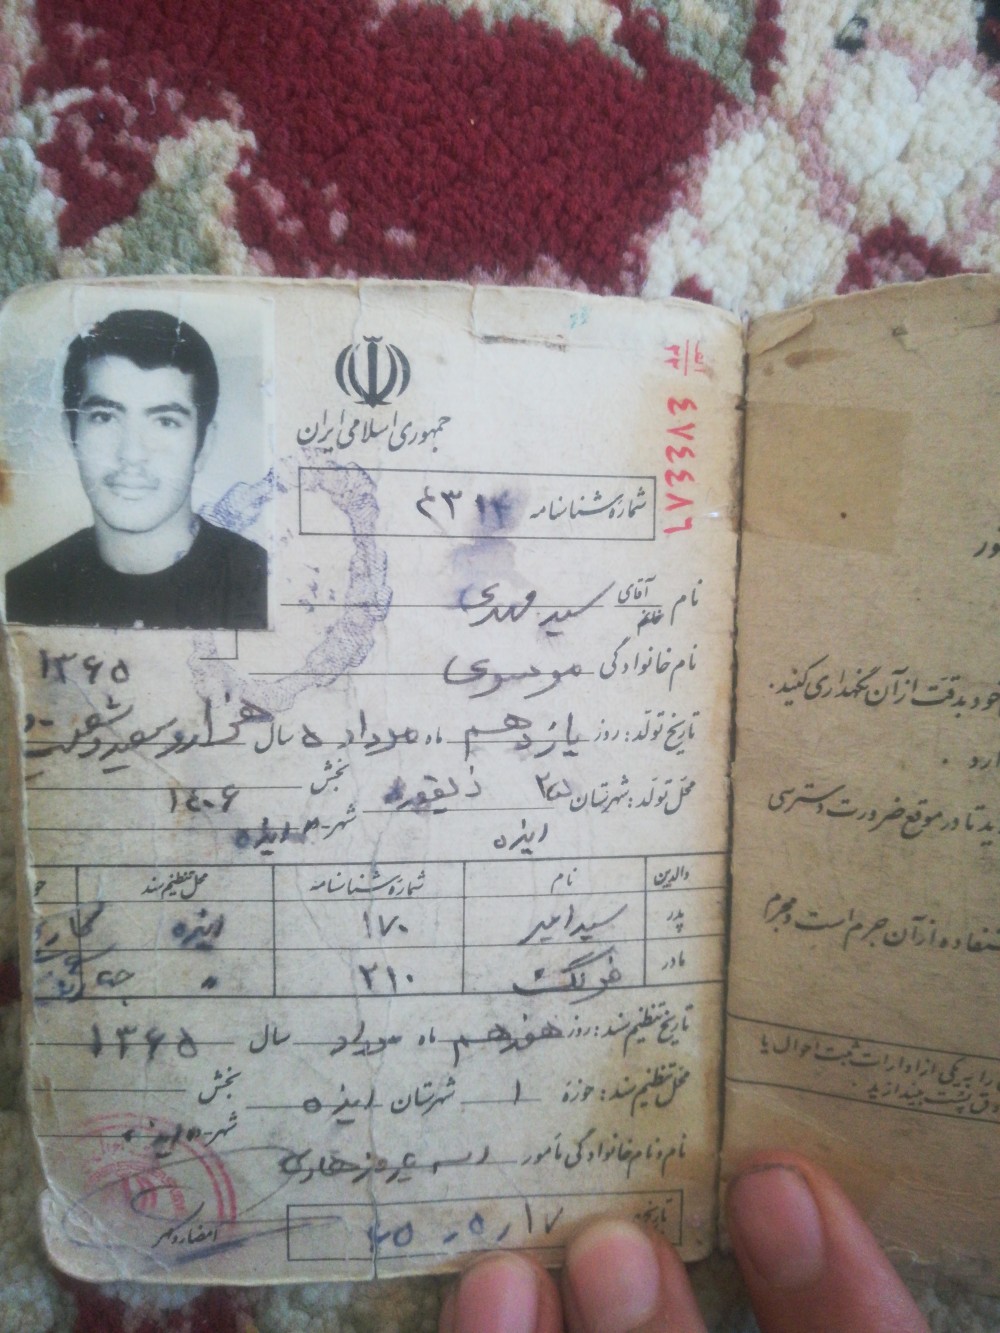 جمهوری اسلامی ایران
شماره شناسنامه
نام آقای خانم سید مهدی
نام خانوادگی موسوی
۱۳۶۵
تاریخ تولد: روز یازدهم ماه مرداد سال هزار و سیصد و شصت و
محل تولد: شهرستان ۲۵ ذیقعده بخش
۱۴۰۶
ایذه شهر- ده ایذه
والدین نام شماره شناسنامه محل تنظیم سند
پدر سید امیر ۱۷۰ ایذه
مادر ۲۱۰ "
تاریخ تنظیم سند: روز هفدهم ماه مرداد سال ۱۳۶۵
محل تنظیم سند: حوزه ۱ شهرستان ایذه بخش
شهر- ده ایذه
نام و نام خانوادگی مأمور
امضاء و مهر
تاریخ ۱۷ ر ۵ ر ۶۵
خود بدقت از آن نگهداری کنید.
ارد.
ید تا در موقع ضرورت دسترسی
ستفاده از آن جرم است و مجرم
را به یکی از ادارات ثبت احوال یا
ق پست بیندازید.